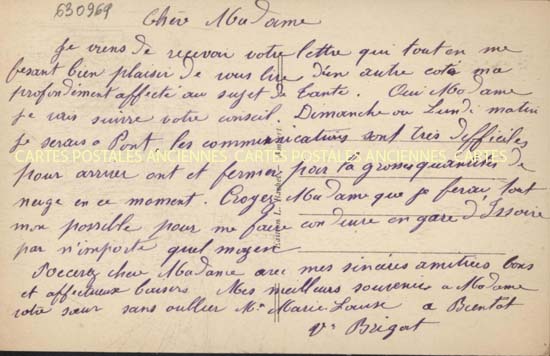 630969
Chère Madame
Je viens de recevoir votre lettre qui tout en me
fesant bien plaisir de vous lire d'en autre coté ma
profondiment affecté au sujet de Tante. Oui Madame
je vais suivre votre conseil. Dimanche ou Lundi matin
je serais a Pont, les communicatives sont très difficiles
CARTES POSTALES ANCIENNES CARTES POSTALES ANCIENNES CARTES POSTALES ANCIENNES
pour arriver ont et fermer pour la grosse quantités de
neige en ce moment. Croyez Madame que je ferai tout
mon possible pour me faire conduire en gare d'Issoire
par n'importe quel moyen.
Recevez chere Madame avec mes sincères amitiées bons
et affectueux baisers. Mes meilleurs souvenirs a Madame
votre sœur sans oullier Mme Marie-Louise a Bientot
Ve Brigot